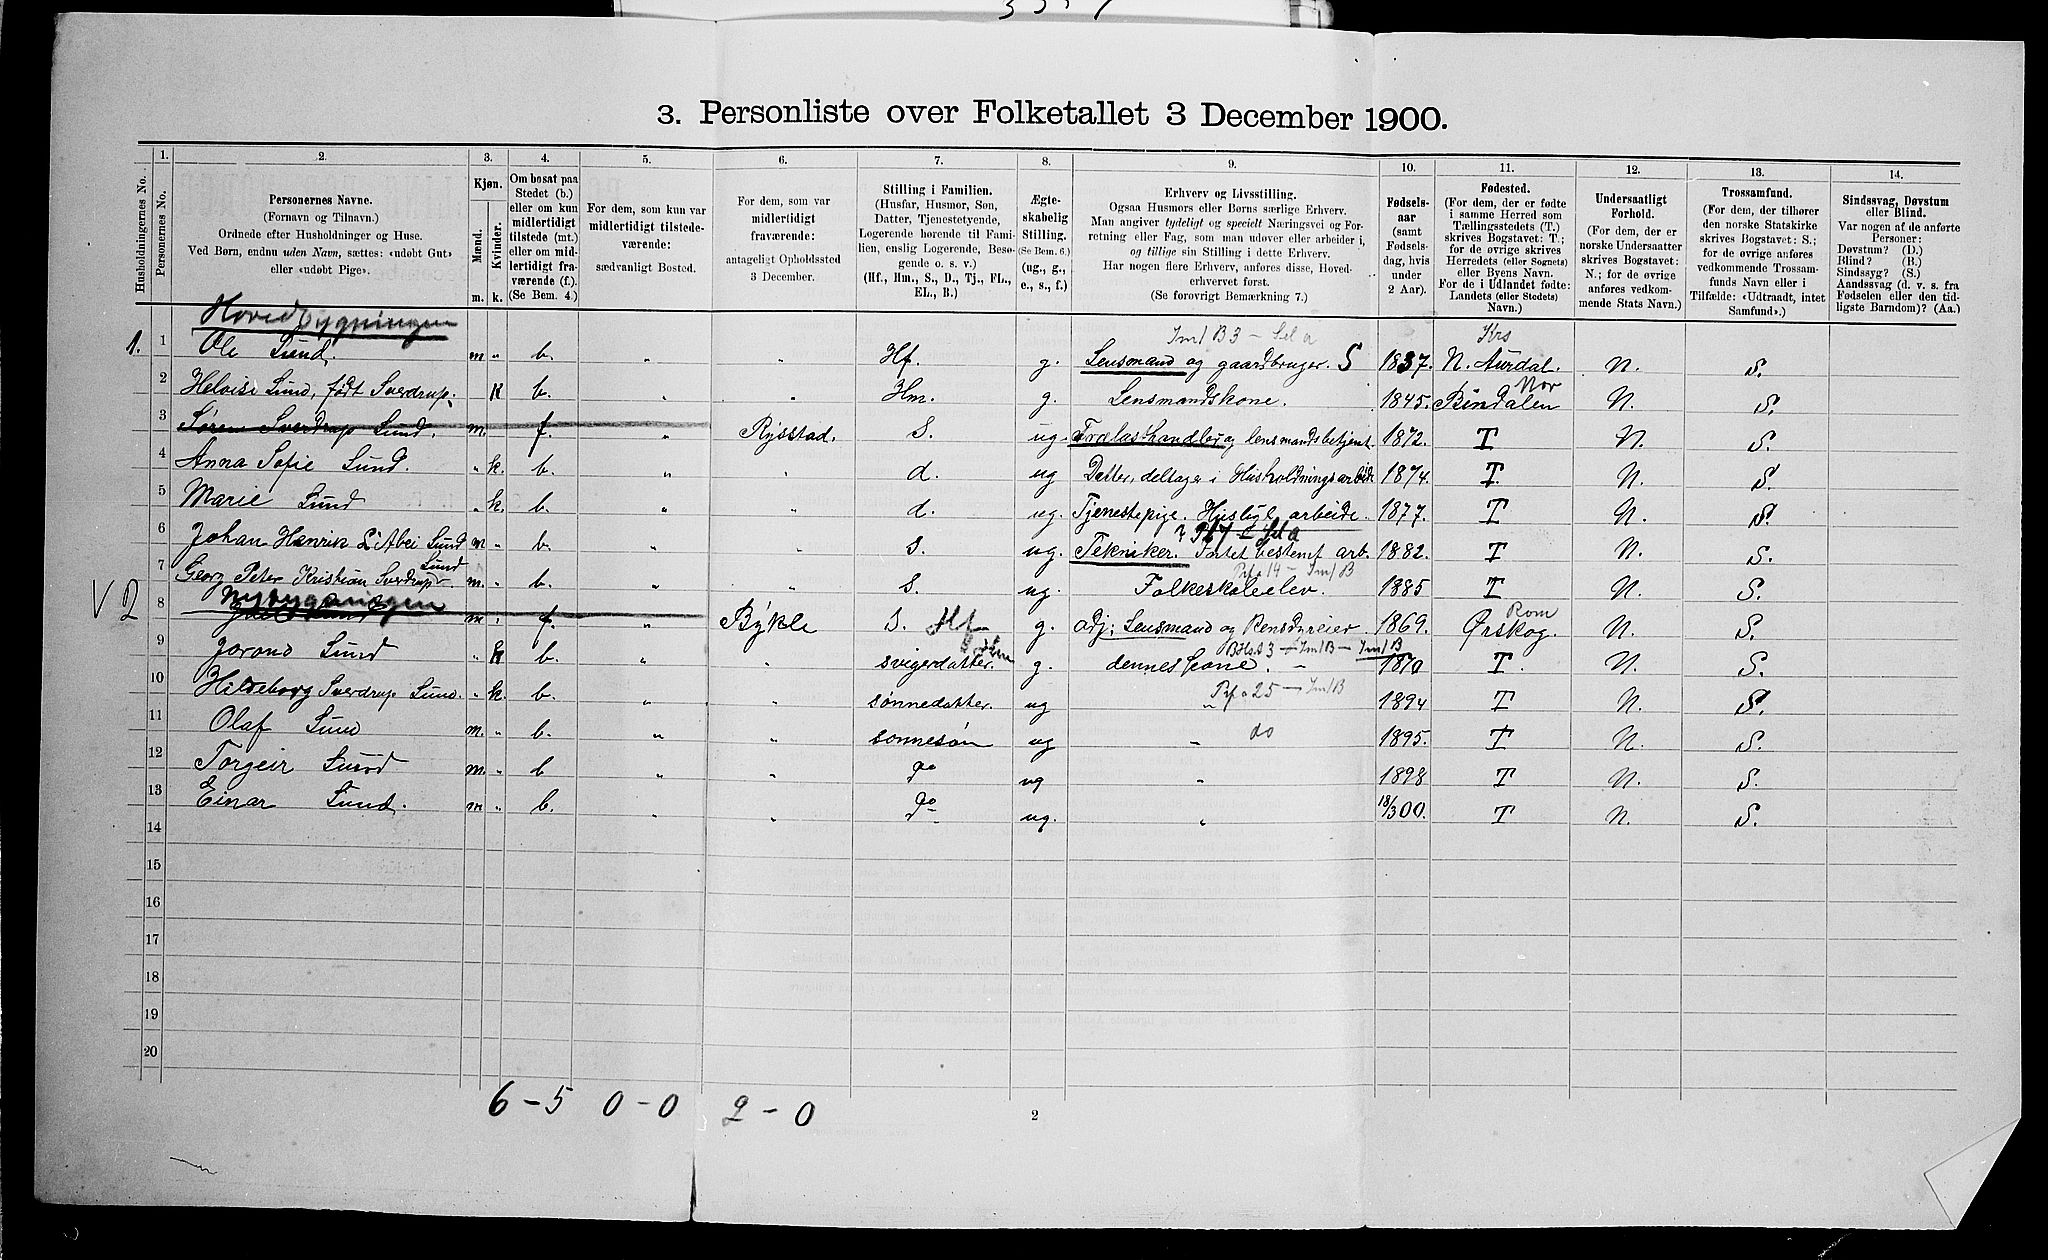 3. Personliste over Folketallet 3 December 1900.
Husholdningernes No.
1.
Personernes No.
2.
Personernes Navne.
(Fornavn og Tilnavn.)
Ordnede efter Husholdninger og Huse.
Ved Børn, endnu uden Navn, sættes: «udøbt Gut»
eller «udøbt Pige».
3.
Kjøn.
Mænd.
Kvinder.
m.
k.
4.
Om bosat paa
Stedet (b.)
eller om kun
midlertidigt
tilstede (mt.)
eller om mid-
lertidigt fra-
værende (f.).
(Se Bem. 4.)
5.
For dem, som kun var
midlertidigt tilstede-
værende:
sædvanligt Bosted.
6.
For dem, som var
midlertidigt
fraværende:
antageligt Opholdssted
3 December.
7.
Stilling i Familien.
(Husfar, Husmor, Søn,
Datter, Tjenestetyende,
Logerende hørende til Fami-
lien, enslig Logerende, Besø-
gende o. s. v.)
(Hf., Hm., S., D., Tj., FL.,
EL., B.)
8.
Ægte-
skabelig
Stilling.
(Se Bem. 6.)
(ug., g.,
e., s., f.)
9.
Erhverv og Livsstilling.
Ogsaa Husmors eller Børns særlige Erhverv.
Man angiver tydeligt og specielt Næringsvei og For-
retning eller Fag, som man udøver eller arbeider i,
og tillige sin Stilling i dette Erhverv.
Har nogen flere Erhverv, anføres disse, Hoved-
erhvervet først.
(Se forøvrigt Bemærkning 7.)
10.
Fødsels-
aar
(samt
Fødsels-
dag, hvis
under
2 Aar).
11.
Fødested.
(For dem, der er fødte
i samme Herred som
Tællingsstedets (T.)
skrives Bogstavet: T.;
for de øvrige skrives
Herredets (eller Sognets)
eller Byens Navn.
For de i Udlandet fødte:
Landets (eller Stedets)
Navn.)
12.
Undersaatligt
Forhold.
(For dem, der er
norske Undersaatter
skrives Bogstavet:
N.; for de øvrige
anføres vedkom-
mende Stats Navn.)
13.
Trossamfund.
(For dem, der tilhører
den norske Statskirke
skrives Bogstavet: S.;
for de øvrige anføres
vedkommende Trossam-
funds Navn eller i
Tilfælde: «Udtraadt, intet
Samfund».)
14.
Sindssvag, Døvstum
eller Blind.
Var nogen af de anførte
Personer:
Døvstum? (D.)
Blind? (B.)
Sindssyg? (S.)
Aandssvag (d. v. s. fra
Fødselen eller den tid-
ligste Barndom)? (Aa.)
Hovedbygningen
Im/B3 - Sel a Krs
1. 1 Ole Sund. m " b. " " Hf. g. Lensmand og gaardbruger. S 1837. N. Aurdal. N. S.
Nor
2 Heloise Sund, født Sverdrup. k b. " " Hm. g. Lensmandskone. 1845. Bindalen N. S.
3 Søren Sverdrup Sund. m. f. " Rysstad. S. ug. Trælasthandler og lensmandsbetjent 1872. T N. S.
4 Anna Sofie Sund. " k. b. " " d. ug Datter, deltager i Husholdningsarbeide 1874. T. N. S.
5 Marie Sund " k. b. " " d. ug. Tjenestepige. Huslygt arbeide. 1877. T N. S.
6 Johan Henrik L'Abei Sund m " b. " " S. ug. Tekniker. Intet bestemt arb. 1882. T N. S.
Sund
7 Georg Peter Kristian Sverdrup m. " b. " " S. ug. Folkeskoleelev. 1885 T N. S.
Nybygningen
V 2 8 Sund m. " f. " Bykle S. Hf g. adj. Lensmand og Rensdyreier 1869. Ørskog. Rom N. S.
9 Jorond Sund " k b. " " svigerdatter. g. dennes kone. 1870 T. N. S.
10 Hildeborg Sverdrup Sund. " k. b. " " sønnedatter. ug " Prf a 25 - Im/B 1894 T N. S.
11 Olaf Sund m. " b. " " sonnesøn ug " do 1895. T N. S.
12 Torgeir Sund m. " b " " do ug " 1898 T N. S.
13 Einar Sund. m " b. " " do ug. " 18/3 00. T N. S.
14
15
16
17
18
19
20
6 - 5 0 - 0 2 - 0
2